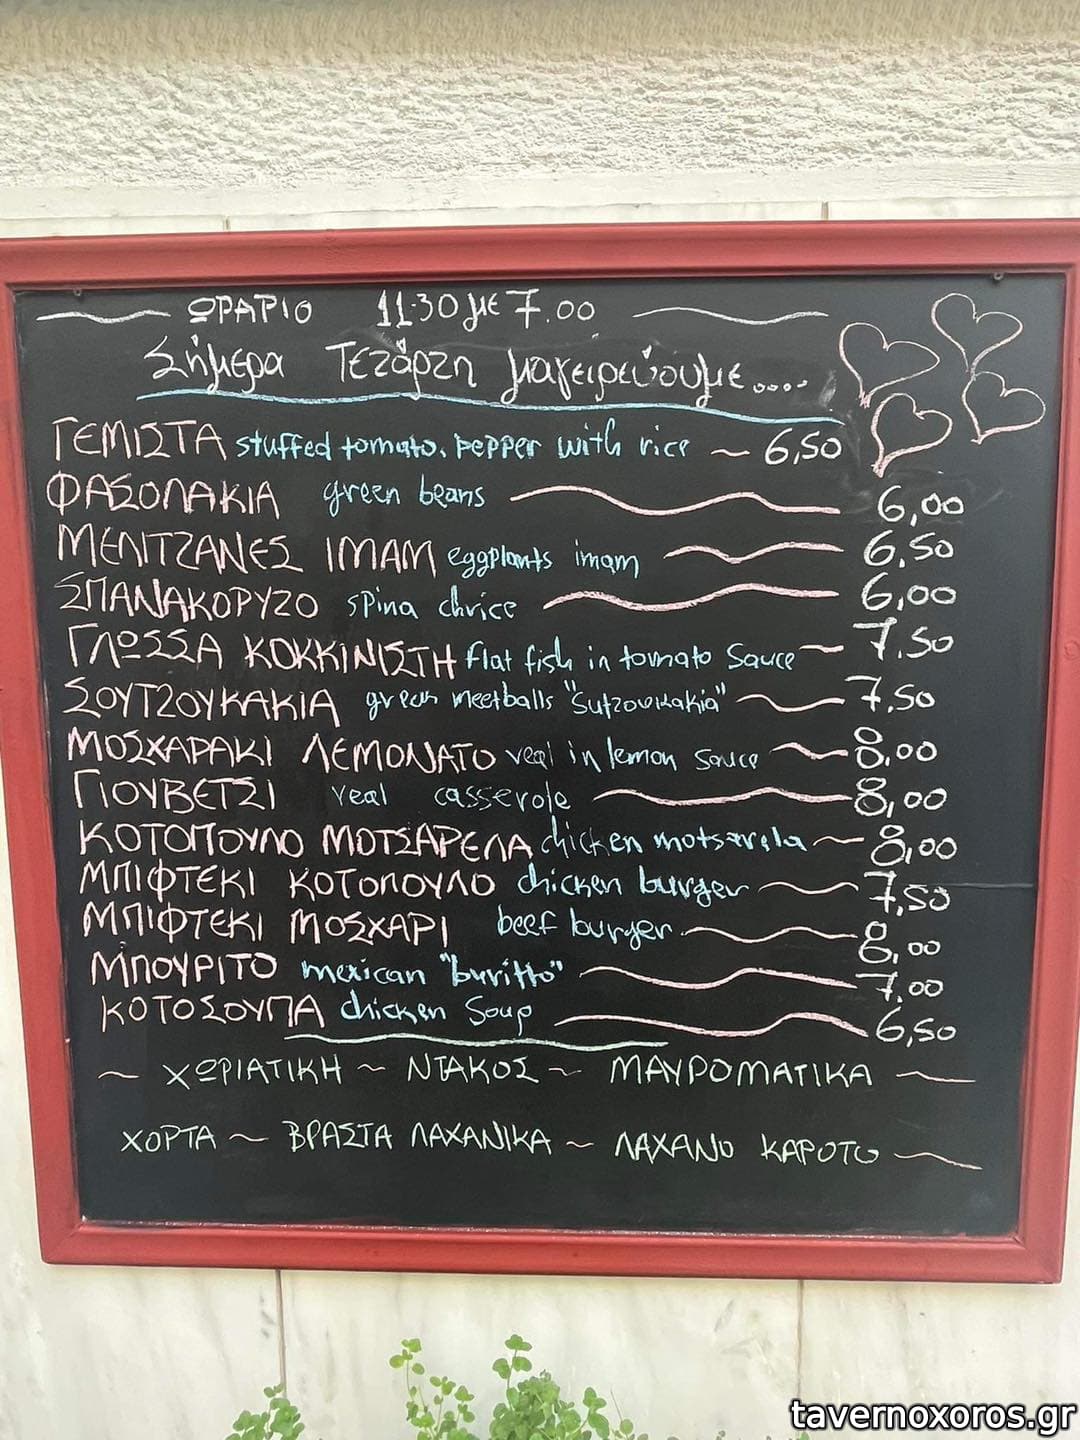 ΩΡΑΡΙΟ 11.30 με 7.00
Σήμερα Τετάρτη μαγειρεύουμε....
ΓΕΜΙΣΤΑ stuffed tomato. pepper with rice ~ 6,50
ΦΑΣΟΛΑΚΙΑ green beans 6,00
ΜΕΛΙΤΖΑΝΕΣ ΙΜΑΜ eggplants imam 6,50
ΣΠΑΝΑΚΟΡΥΖΟ spina chrice 6,00
ΓΛΩΣΣΑ ΚΟΚΚΙΝΙΣΤΗ flat fish in tomato sauce 7.50
ΣΟΥΤΖΟΥΚΑΚΙΑ green meetballs "sutzουκakia" 7,50
ΜΟΣΧΑΡΑΚΙ ΛΕΜΟΝΑΤΟ veal in lemon sauce 8,00
ΓΙΟΥΒΕΤΣΙ veal casserole 8,00
ΚΟΤΟΠΟΥΛΟ ΜΟΤΣΑΡΕΛΑ chicken motsarela 8,00
ΜΠΙΦΤΕΚΙ ΚΟΤΟΠΟΥΛΟ chicken burger 7,50
ΜΠΙΦΤΕΚΙ ΜΟΣΧΑΡΙ beef burger 8,00
ΜΠΟΥΡΙΤΟ mexican "buritto" 7,00
ΚΟΤΟΣΟΥΠΑ chicken soup 6,50
~ ΧΩΡΙΑΤΙΚΗ ~ ΝΤΑΚΟΣ ~ ΜΑΥΡΟΜΑΤΙΚΑ ~
ΧΟΡΤΑ ~ ΒΡΑΣΤΑ ΛΑΧΑΝΙΚΑ ~ ΛΑΧΑΝΟ ΚΑΡΟΤΟ ~
tavernoxoros.gr